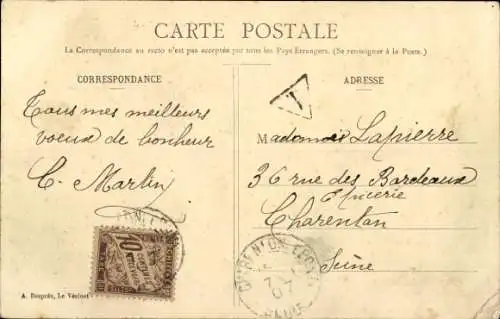 CARTE POSTALE
La Correspondance au recto n'est pas acceptée par tous les Pays Étrangers. (Se renseigner à la Poste.)
CORRESPONDANCE
ADRESSE
T
Tous mes meilleurs
voeux de bonheur
C. Martin
Mademois Lapierre
36 rue des Bordeaux
Epicerie
Charenton
Seine
10
CENTIMES
A PERCEVOIR
CHARENTON
7
07
SEINE
A. Bougrès, Le Vésinet